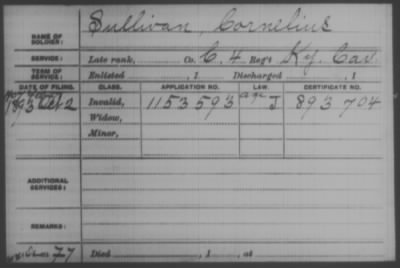 NAME OF SOLDIER: Sullivan, Cornelius
SERVICE: Late rank, Co. C. 4 Reg't Ky. Cav.
TERM OF SERVICE: Enlisted , 1 Discharged , 1
DATE OF FILING. CLASS. APPLICATION NO. LAW. CERTIFICATE NO.
1893 Oct 2 Invalid, 1153593 J 893704
Widow,
Minor,
ADDITIONAL SERVICES:
REMARKS:
77 Died , 1 , at